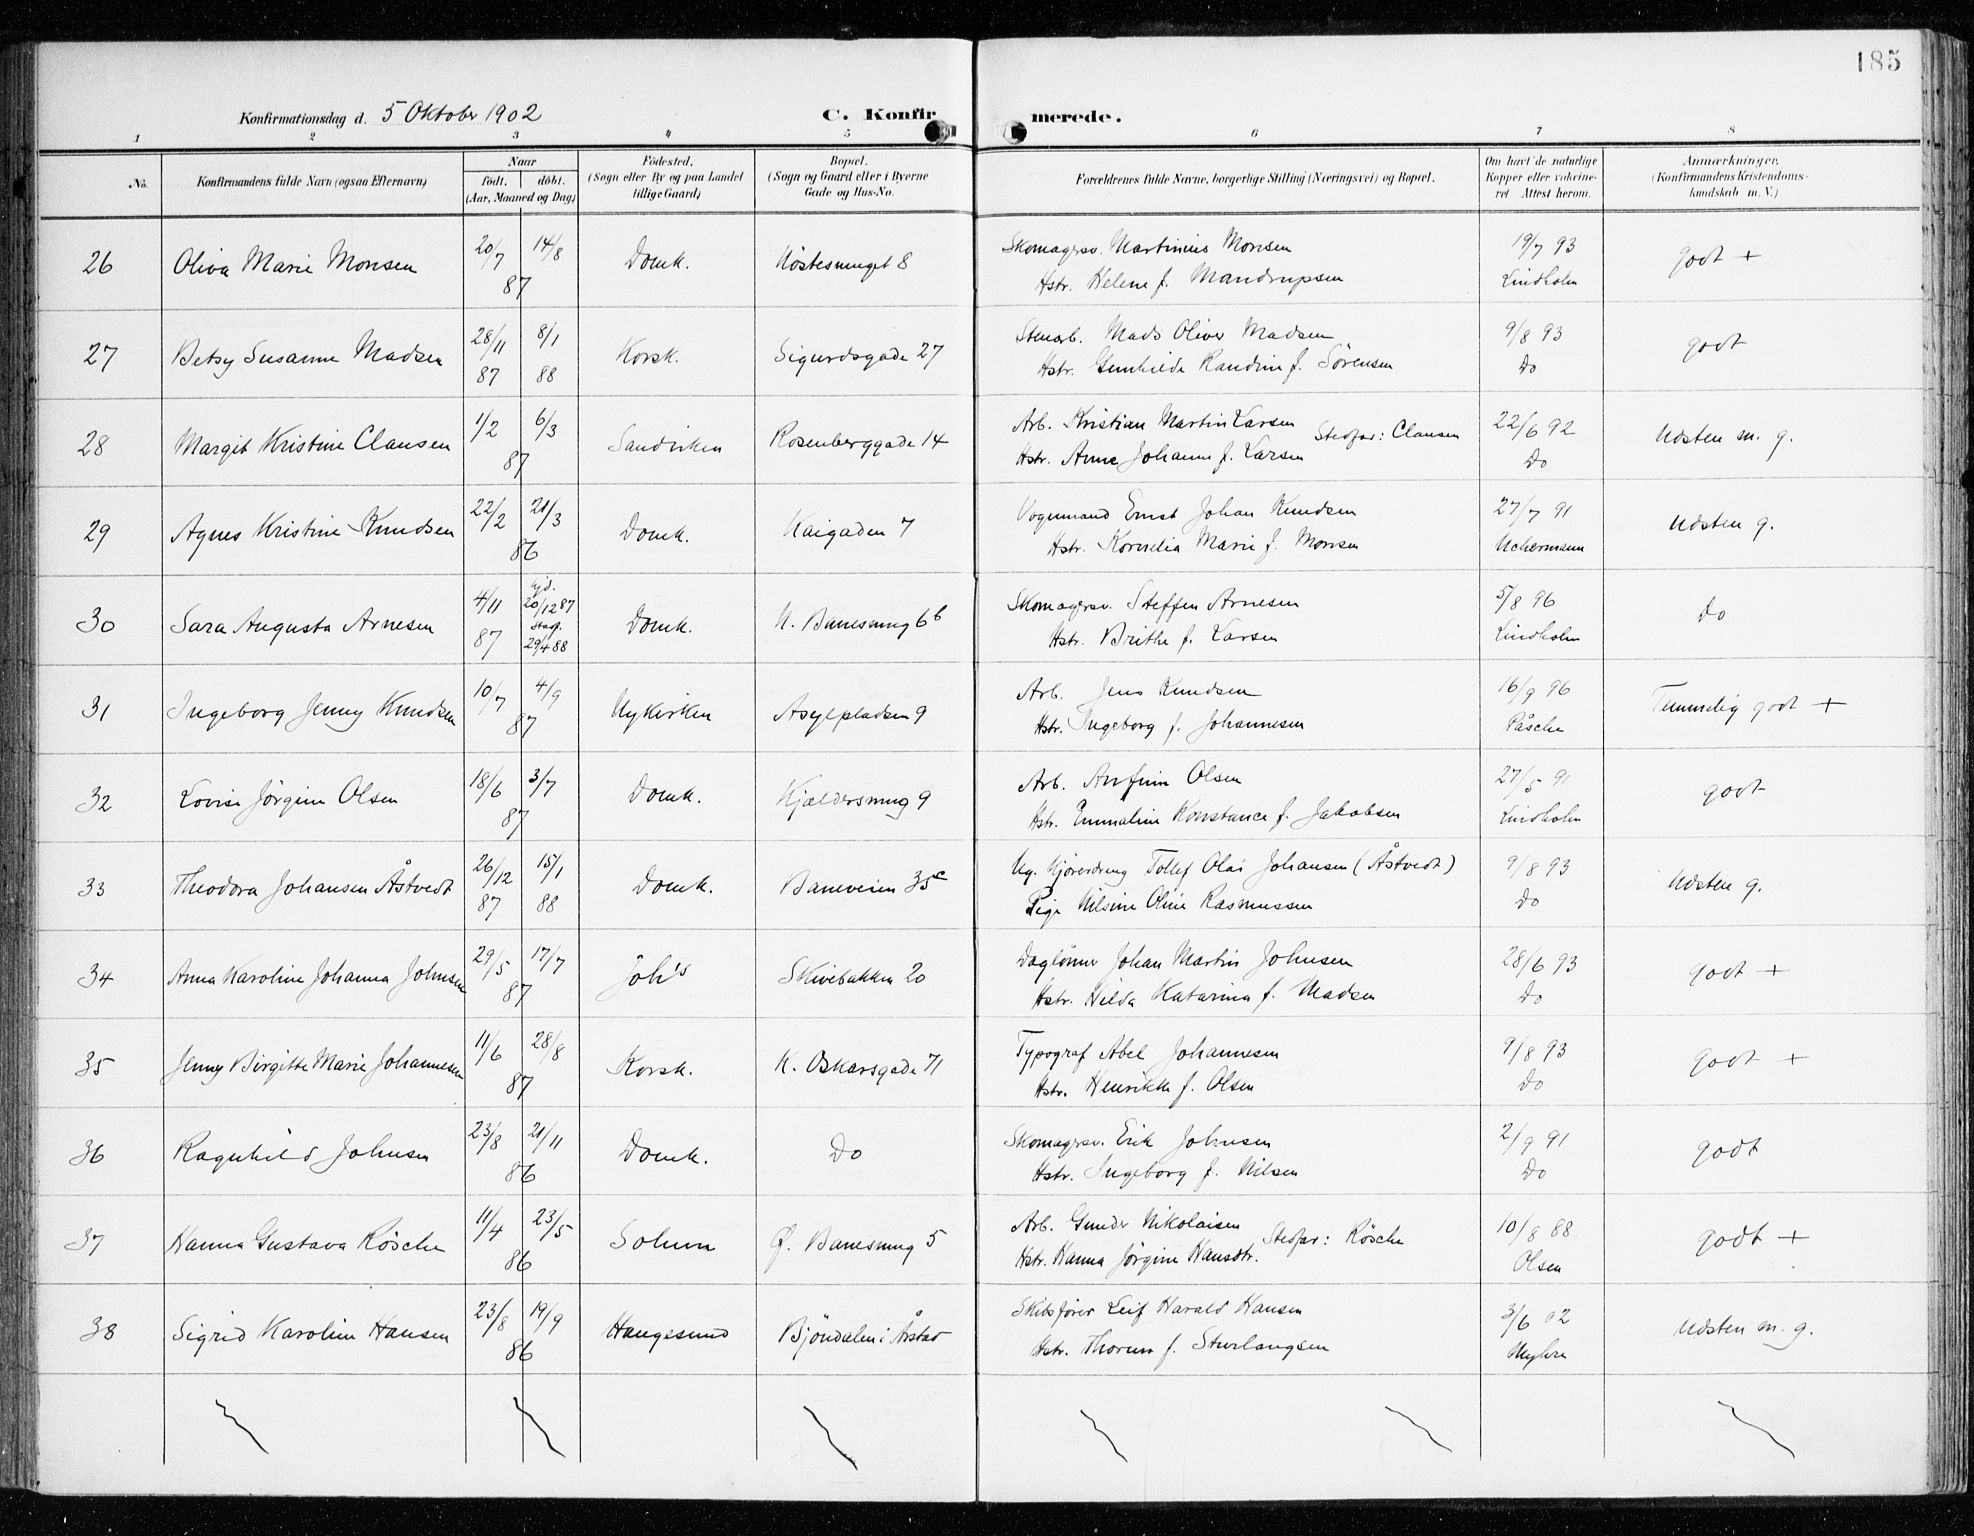 185
Konfirmationsdag d. 5 Oktober 1902 C. Konfir merede.
1 2 3 4 5 6 7 8
No. Konfirmandens fulde Navn (ogsaa Efternavn) Naar födt. döbt. (Aar, Maaned og Dag) Födested. (Sogn eller By og paa Landet tillige Gaard) Bopæl. (Sogn og Gaard eller i Byerne Gade og Hus-No. Forældrenes fulde Navne, borgerlige Stilling (Næringsvei) og Bopæl. Om havt de naturlige Kopper eller vakcineret. Attest herom. Anmærkninger. (Konfirmandens Kristendomskundskab m. V.)
26 Oliva Marie Monsen 20/7 14/8 87 Domk. Nöstesmuget 8 Skomagersv. Martinius Monsen 19/7 93 godt +
Hstr. Helene f. Mandrupsen Lindholm
27 Betsy Susanne Madsen 28/11 87 8/1 88 Korsk. Sigurdsgade 27 Stenarb. Mads Oliver Madsen 9/8 93 godt
Hstr. Gunhilde Randine f. Sörensen Do
28 Margit Kristine Clausen 1/2 6/3 87 Sandviken Rosenberggade 14 Arb. Kristian Martin Larsen Stedfar: Clausen 22/6 92 Udsten m. g.
Hstr. Anne Johanne f. Larsen Do
29 Agnes Kristine Knudsen 22/2 21/3 86 Domk. Kaigaden 7 Vognmand Ernst Johan Knudsen 27/7 91 Udsten g.
Hstr. Kornelia Marie f. Monsen Uchermann
30 Sara Augusta Arnesen 4/11 87 hjd. 20/12 87 Stadf. 29/4 88 Domk. N. Banesmug 6b Skomagersv. Steffen Arnesen 5/8 96 Do
Hstr. Brithe f. Larsen Lindholm
31 Ingeborg Jenny Knudsen 10/7 4/9 87 Nykirken Asylpladsen 9 Arb. Jens Knudsen 16/9 96 Temmelig godt +
Hstr. Ingeborg f. Johannesen Påsche
32 Lovise Jörgine Olsen 18/6 3/7 87 Domk. Kjældersmug 9 Arb. Anfinn Olsen 27/5 91 godt
Hstr. Emmaline Konstance f. Jakobsen Lindholm
33 Theodora Johansen Åstvedt 26/12 87 15/1 88 Domk. Baneveien 35c Ug. Kjöredreng Tollef Olai Johansen (Åstvedt) 9/8 93 Udsten g.
Pige Nilsine Oline Rasmussen Do
34 Anna Karoline Johanna Johnsen 29/5 17/7 87 Joh's Skivebakken 20 Daglönner Johan Martin Johnsen 28/6 93 godt +
Hstr. Hilda Katarina f. Madsen Do
35 Jenny Birgitte Marie Johannesen 11/6 28/8 87 Korsk. K. Oskarsgade 71 Typograf Abel Johannesen 9/8 93 godt +
Hstr. Henrikke f. Olsen Do
36 Ragnhild Johnsen 23/8 21/11 86 Domk. Do Skomagersv. Erik Johnsen 2/9 91 godt
Hstr. Ingeborg f. Nilsen Do
37 Hanna Gustava Rösche 11/4 23/5 86 Solum Ø. Banesmug 5 Arb. Gunder Nikolaisen Stedfar: Rösche 10/8 88 godt +
Hstr. Hanna Jörgine Hansdtr. Olsen
38 Sigrid Karoline Hansen 23/8 19/9 86 Haugesund Björndalen i Årstad Skibsförer Leif Harald Hansen 3/6 02 Udsten m. g.
Hstr. Thorun f. Sturlaugsen Myhre